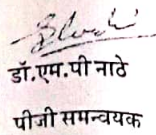 डॉ.एम.पी नाठे
पीजी समन्वयक